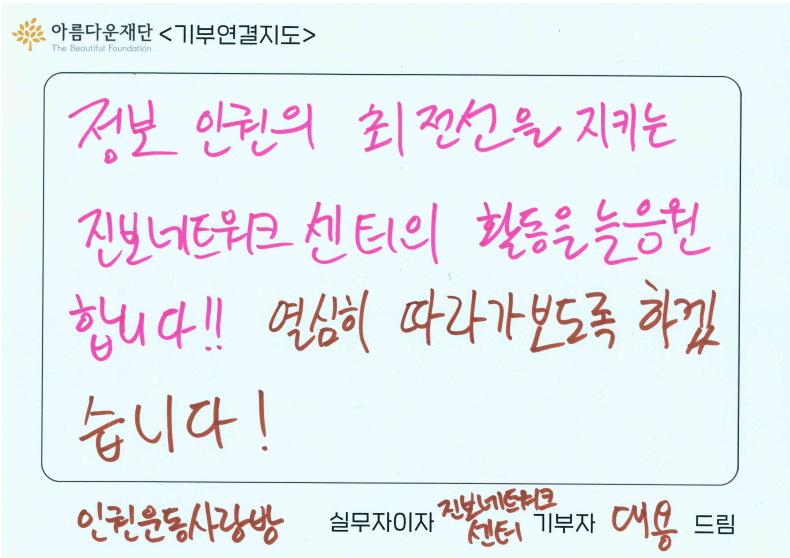 아름다운재단 <기부연결지도>
The Beautiful Foundation
정보 인권의 최전선을 지키는
진보네트워크 센터의 활동을 늘 응원
합니다!! 열심히 따라가보도록 하겠
습니다!
인권운동사랑방 실무자이자 진보네트워크 센터 기부자 대용 드림